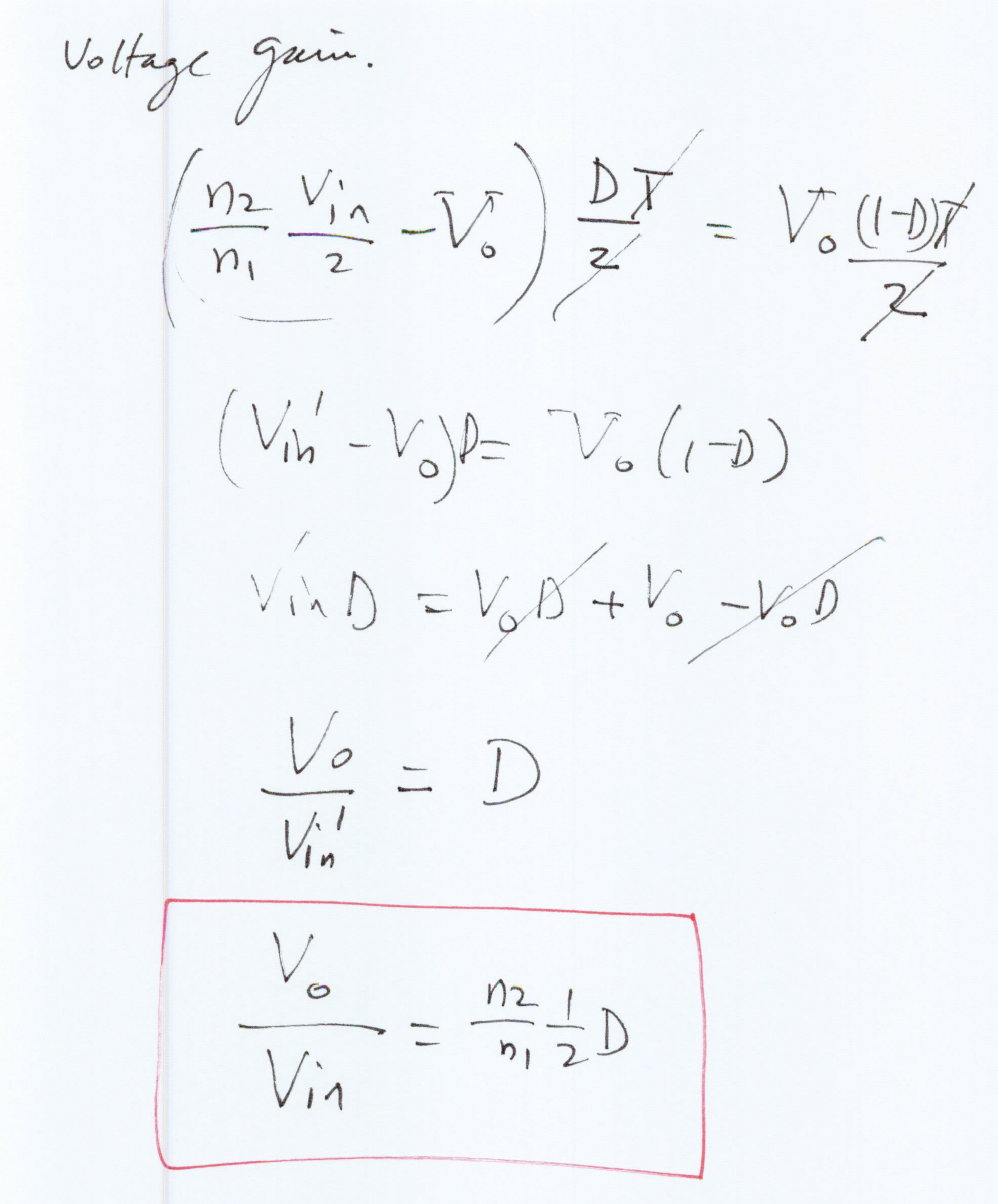 Voltage gain.
(n2/n1 Vin/2 - Vo) DT/2 = Vo (1-D)T/2
(Vin' - Vo)D = Vo(1-D)
Vin' D = VoD + Vo - VoD
Vo/Vin' = D
Vo/Vin = n2/n1 1/2 D